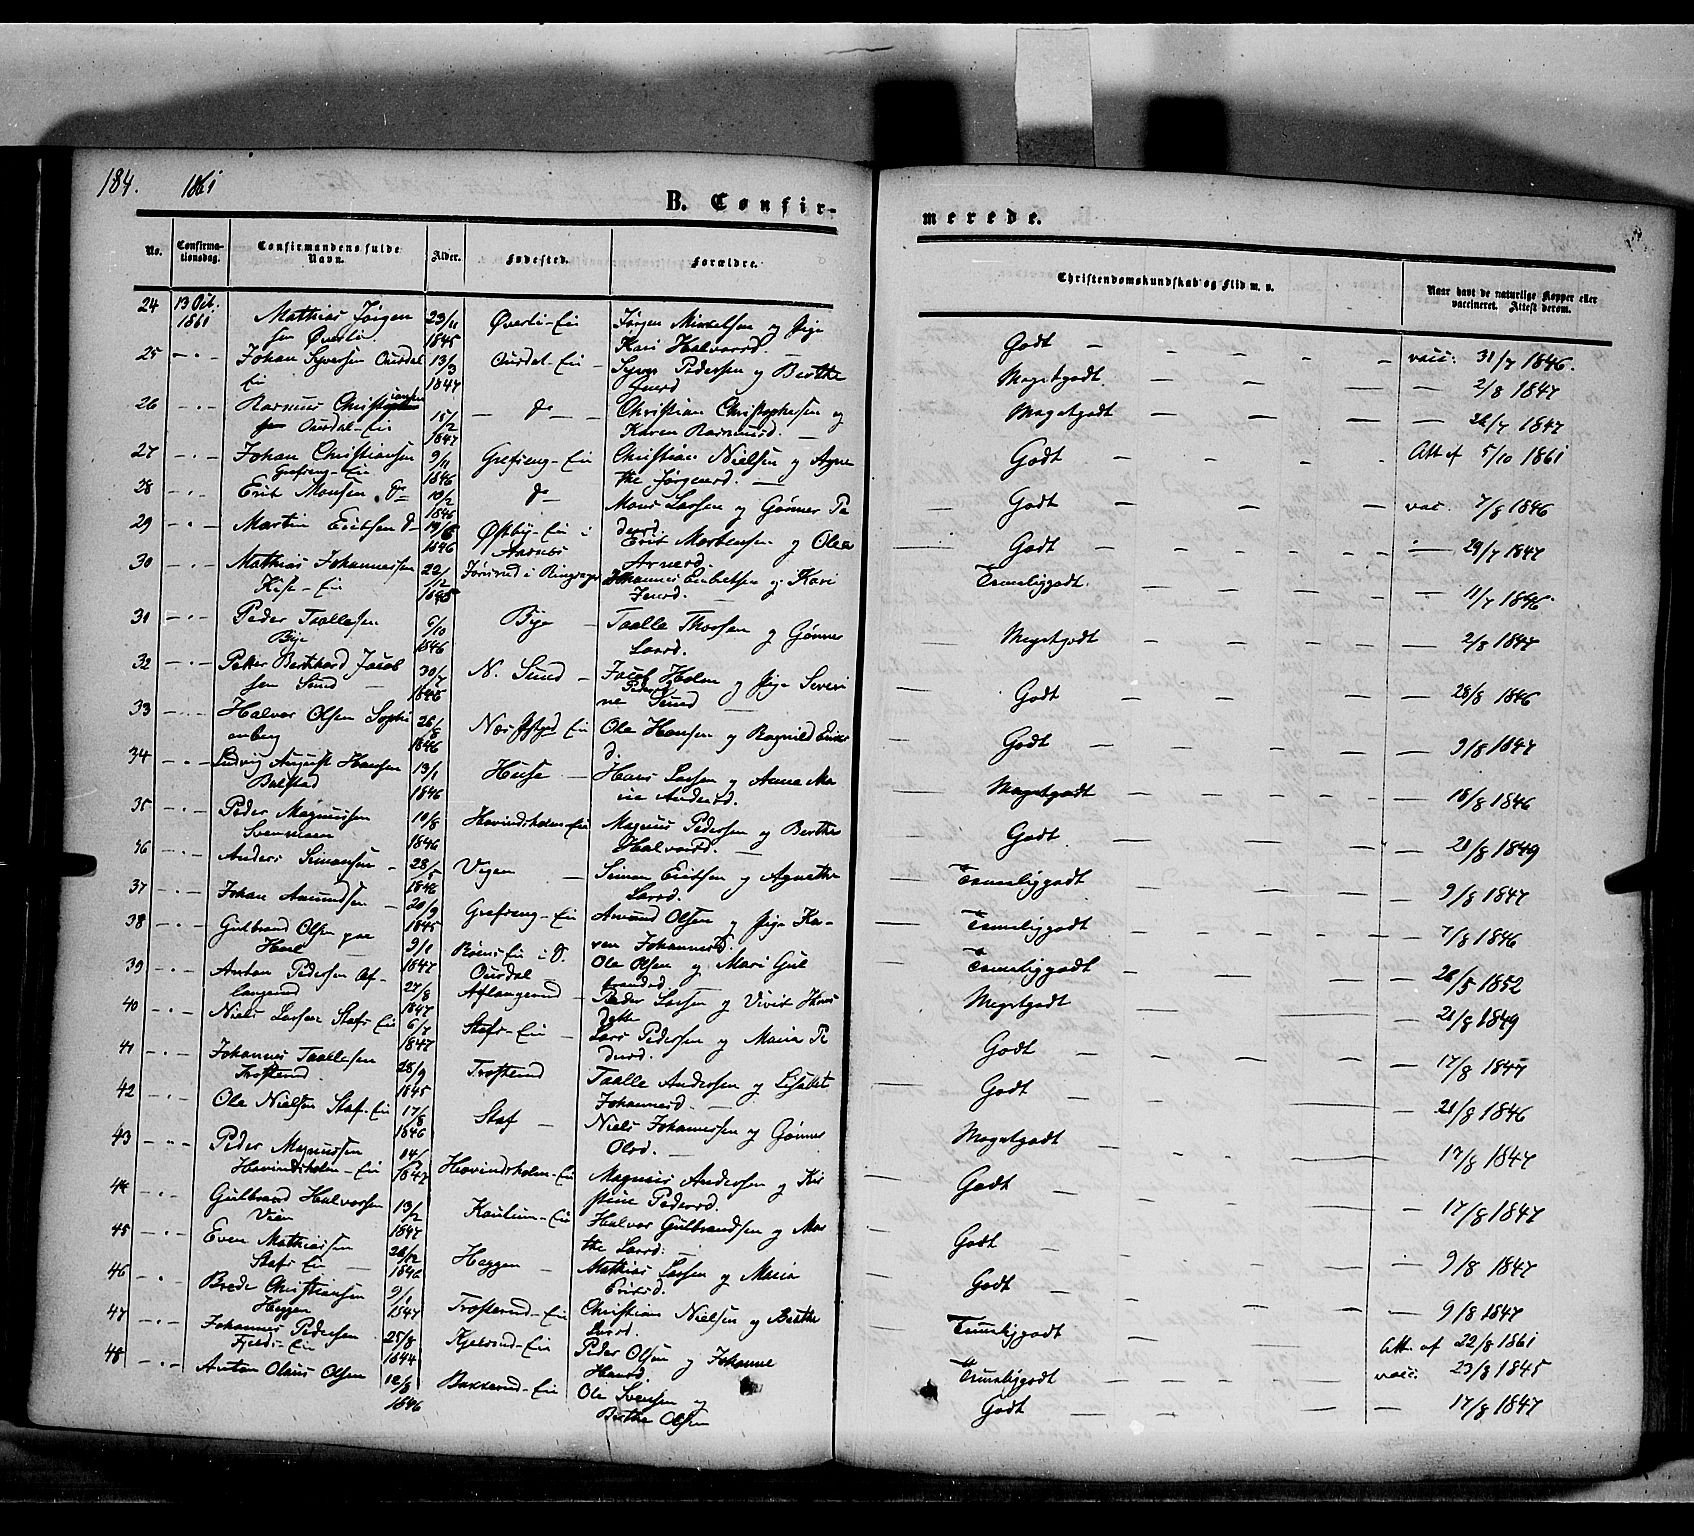 184. 1861
B. Confir-
merede.
No. Confirma-
tionsdag. Confirmandens fulde
Navn. Alder. Fødested. Forældre. Christendomskundskab og Flid m. v. Naar havt de naturlige Kopper eller
vaccineret. Attest derom.
24 13 Oct. 1861 Mathias Jørgen
sen Øverli 23/11 1845 Øverli-Eie Jørgen Mikkelsen og Pige
Kari Halvorsd. Godt vacc. 31/7 1846.
25 Johan Syversen Ourdal
Eie 13/3 1847 Ourdal-Eie Syver Pedersen og Berthe
Meget godt 2/8 1847
26 Rasmus Christiansen
Ourdal-Eie 15/2 1847 do Christian Christophersen og
Karen Rasmusd. Meget godt 26/7 1847
27 Johan Christiansen
Grefseng-Eie 9/11 1846 Grefseng-Eie Christian Nielsen og Agne
the Jørgensd. Godt Att. af 5/10 1861
28 Erik Monsen do 10/2 1846 do Mons Larsen og Gønner Pe
dersd. Godt vac. 7/8 1846
29 Martin Eriksen do 19/6 1846 Østby-Eie i
Aarnes Erik Mortensen og Olea
Arnesd. Godt 29/7 1847
30 Mathias Johannessen
Hise-Eie 22/12 1845 i Ringsager Johannes Engebretsen og Kari
Jensd. Temmeliggodt 11/7 1846
31 Peder Taallesen
Bye 6/10 1846 Bye Taalle Thorsen og Gønner
Larsd. Meget godt 2/8 1847
32 Petter Bernhard Jacob
sen Sund 30/7 1846 N. Sund Jacob Holm og Pige Severi
ne Peders. Sund Godt 28/8 1846
33 Halvor Olsen Sophi
enberg 26/8 1846 Eie Ole Hansen og Ragnild Eriks
d. Godt 9/8 1847
34 Ludvig August Hansen
Balstad 13/1 1846 Huse Hans Larsen og Anne Ma
rie Andersd. Meget godt 18/8 1846
35 Peder Magnussen
Svenmoen 10/8 1846 Hovindsholm-Eie Magnus Pedersen og Berthe
Halvorsd. Godt 21/8 1849
36 Anders Simensen 28/5 1846 Vigen Simen Eriksen og Agnethe
Larsd. Temmeliggodt 9/8 1847
37 Johan Amundsen 20/9 1845 Grefseng-Eie Amund Olsen og Pige Ka-
ren Johannesd. Temmeliggodt 7/8 1846
38 Gulbrand Olsen paa
Hoel 9/1 1847 Eie i Ø.
Ourdal Ole Olsen og Mari Gul
brandsd. Temmeliggodt 26/5 1852
39 Anton Pedersen Af-
langerud 27/8 1847 Aflangerud Peder Larsen og Vivit Hans
datte Meget godt 21/8 1849
40 Niels Larsen Stafs-Eie 6/7 1847 Stafs-Eie Lars Pedersen og Maria Pe
dersd. Godt 17/8 1847
41 Johannes Taallesen
Trosterud 28/9 1845 Trosterud Taalle Andersen og Lisabet
Johannesd. Godt 21/8 1846
42 Ole Nielsen Stafs-Eie 17/8 1846 Staf Niels Johannessen og Gønner
Olsd. Meget godt 17/8 1847
43 Peder Magnussen
Hovindsholm-Eie 1847 Hovindsholm-Eie Magnus Andersen og Kir
stine Pedersd. Godt 17/8 1847
44 Gulbrand Halvorsen
Vien 13/2 1847 Kaulum-Eie Halvor Gulbrandsen og Mar
the Larsd. Godt 9/8 1847
45 Even Mathiassen
Stafs Eie 26/12 1846 Heggen Mathias Larsen og Maria
Eriksd. Godt 9/8 1847
46 Brede Christiansen
Heggen 9/1 1847 Trosterud-Eie Christian Nielsen og Berthe
Larsd. Temmeliggodt Att. af 22/8 1861
47 Johannes Pedersen
Fjelds-Eie 25/8 1844 Kjelsrud-Eie Peder Olsen og Johanne
Hansd. Temmeliggodt vacc. 23/8 1845
48 Anton Olaus Olsen 12/8 1846 Bakkerud-Eie Ole Svensen og
Berthe Olsen Godt 17/8 1847